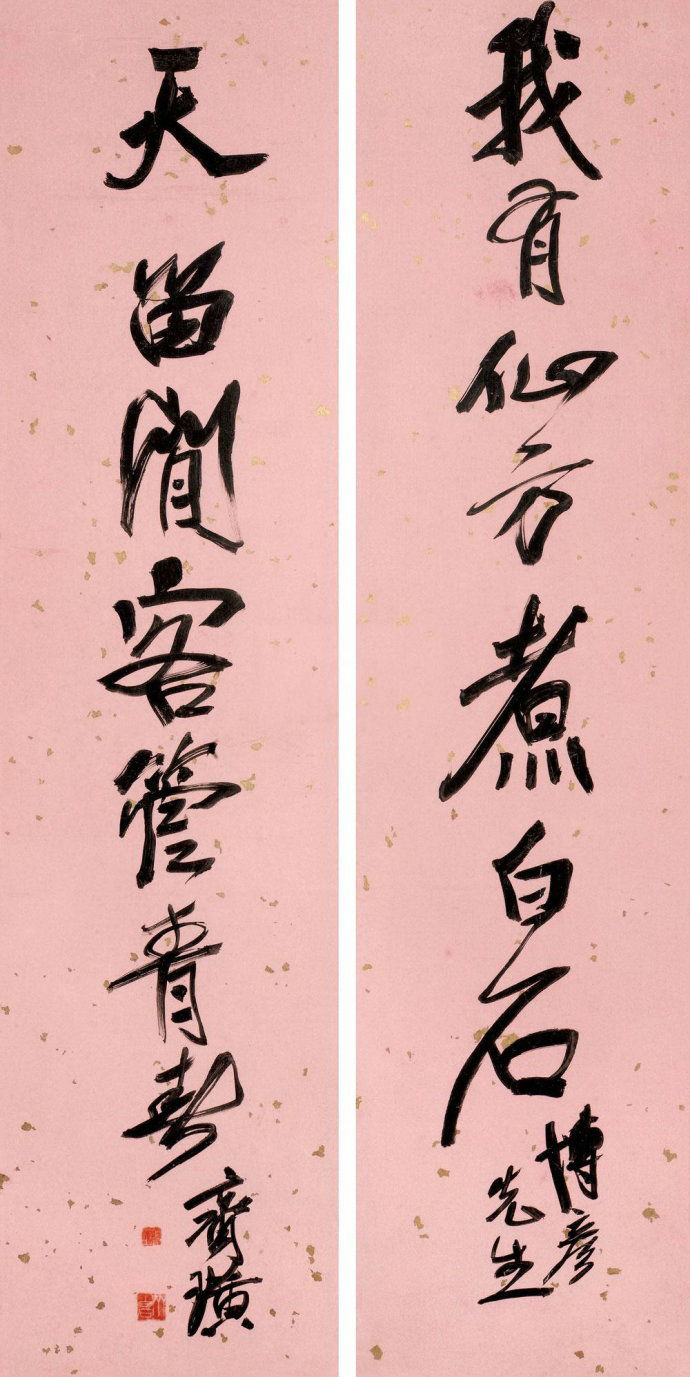 我有仙方煮白石
博彥
先生
天留閒客管青春
齊璜